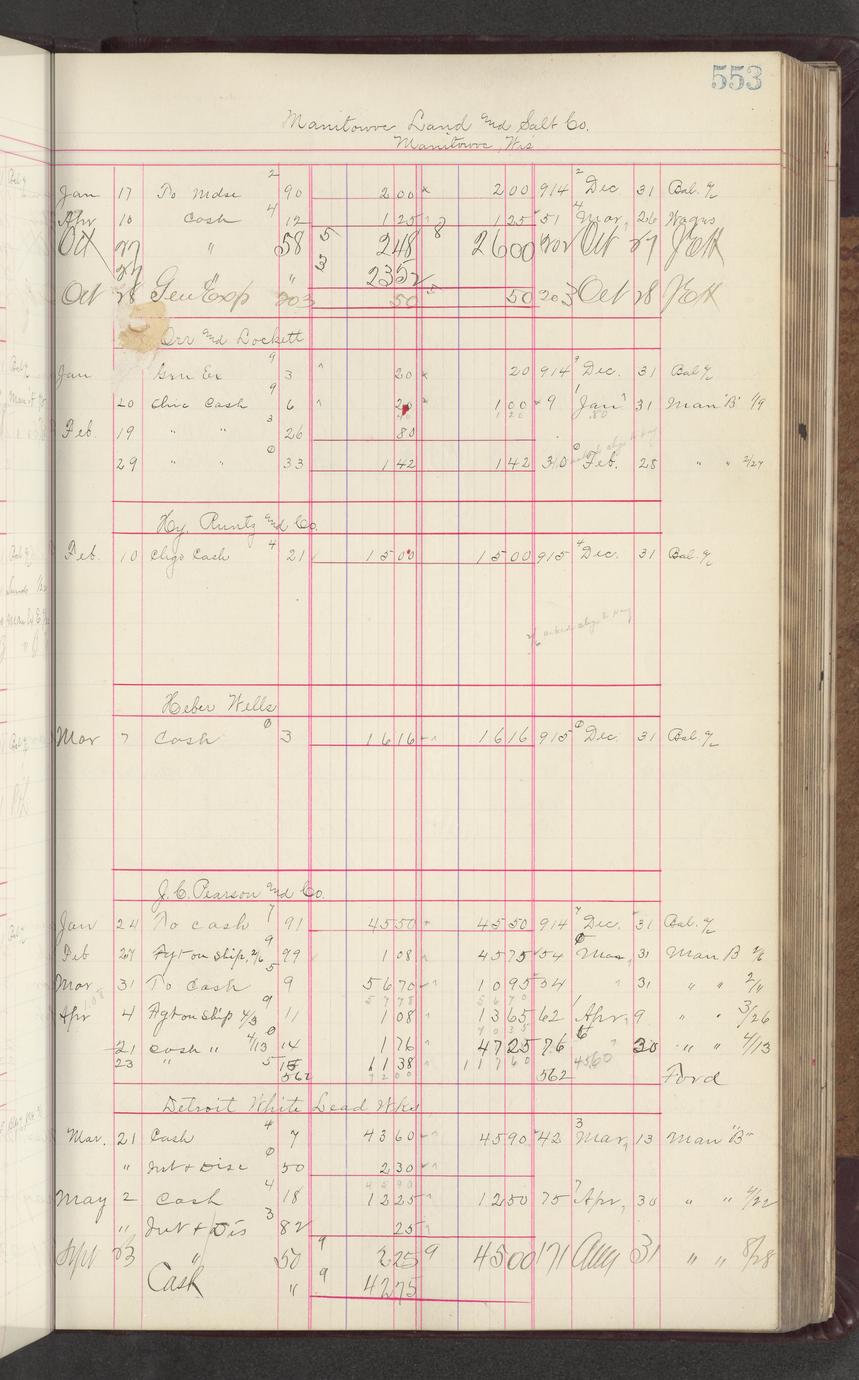 553
Manitowoc Land and Salt Co.
Manitowoc, Wis
Jan 17 To Mdse 2 90 200 200 914 2 Dec. 31 Bal. %
Apr 10 Cash 4 12 125 125 51 4 Mar, 26
Oct 27 " 58 5 248 8 2600 202 Oct 27
27 " " 3 2352
Oct 28 Gen Exp 203 50 50 203 Oct 28
Orr and Lockett
Jan Gen Ex 9 3 20 20 914 9 Dec. 31 Bal %
20 Chic Cash 9 6 20 100 9 1 Jan 31 Man "B" 1/9
Feb. 19 " " 3 26 80
29 " " 0 33 142 142 310 0 Feb. 28 " " 2/27
Hy. Runtz and Co.
Feb. 10 Chgo Cash 4 21 1500 1500 915 4 Dec. 31 Bal. %
Heber Wells
Mar 7 Cash 0 3 1616 1616 915 0 Dec. 31 Bal. %
J.C. Pearson and Co.
Jan 24 To Cash 7 91 4550 4550 914 7 Dec. 31 Bal. %
Feb 27 Agt on Ship. 2/6 9 99 108 4575 54 0 Mar, 31 Man B 2/6
Mar 31 To Cash 5 9 5670 1095 54 " 31 " " 2/11
5778 5670
Apr 4 Agt on Ship 4/3 9 11 108 1365 62 1 Apr, 9 " " 3/26
7035
21 Cash " 4/13 0 14 176 4725 76 6 30 " " 4/13
23 " 5 15 6138 11760 4560
562 7200 562 Ford
Detroit White Lead Wks
Mar. 21 Cash 4 7 4360 4590 42 3 Mar, 13 Man "B"
" Int & Disc 0 50 230
4590
May 2 Cash 4 18 1225 1250 75 7 Apr, 30 " " 4/22
" Int & Dis 3 82 25
Sept 23 " 50 9 225 9 4500 171 Aug 31 " " 8/28
Cash " 9 4275